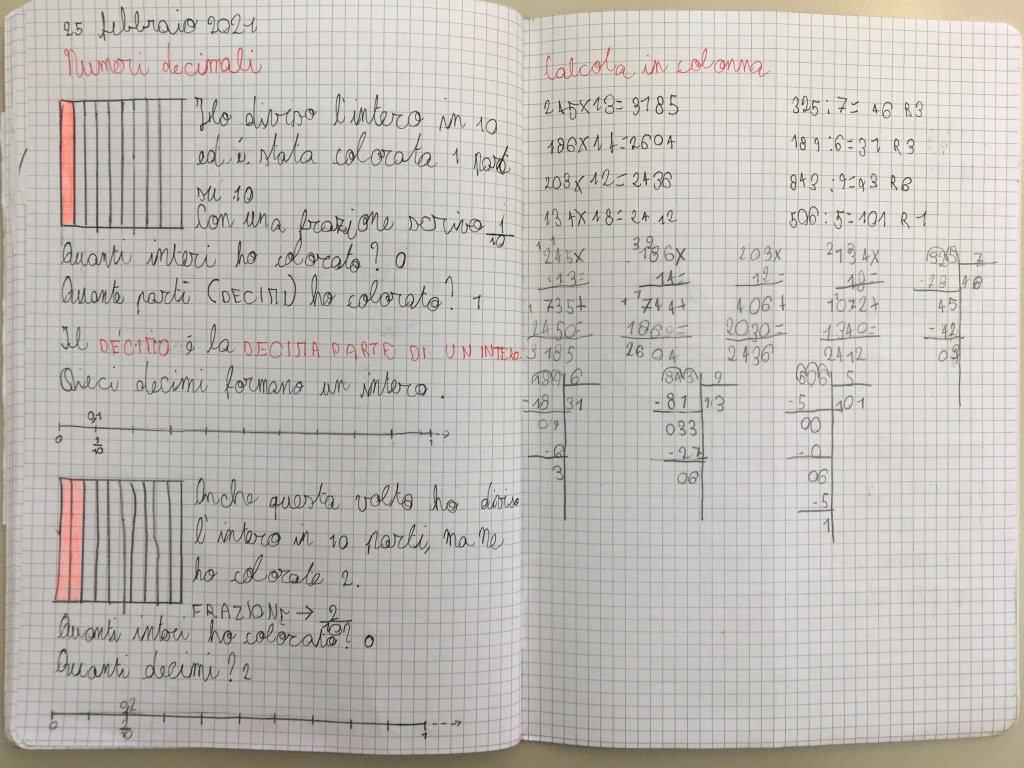 25 febbraio 2021
Numeri decimali
Ho diviso l'intero in 10
ed è stata colorata 1 parte
su 10
Con una frazione scrivo 1/10
Quanti interi ho colorato? 0
Quante parti (DECIMI) ho colorato? 1
Il DECIMO è la DECIMA PARTE DI UN INTERO
Dieci decimi formano un intero.
0,1
0 1/10 1
Anche questa volta ho diviso
l'intero in 10 parti, ma ne
ho colorate 2.
FRAZIONE → 2/10
Quanti interi ho colorato? 0
Quanti decimi? 2
0,2
0 2/10 1
Calcola in colonna
245x13=3185 325:7=46 R3
186x14=2604 189:6=31 R3
203x12=2436 843:9=93 R6
134x18=2412 506:5=101 R1
245x 186x 203x 134x 325 7
13= 14= 12= 18= -28 46
735+ 744+ 406+ 1072+ 45
2450= 1860= 2030= 1340= -42
3185 2604 2436 2412 03
189 6 843 9 506 5
-18 31 -81 93 -5 101
09 033 00
-6 -27 -0
3 06 06
-5
1